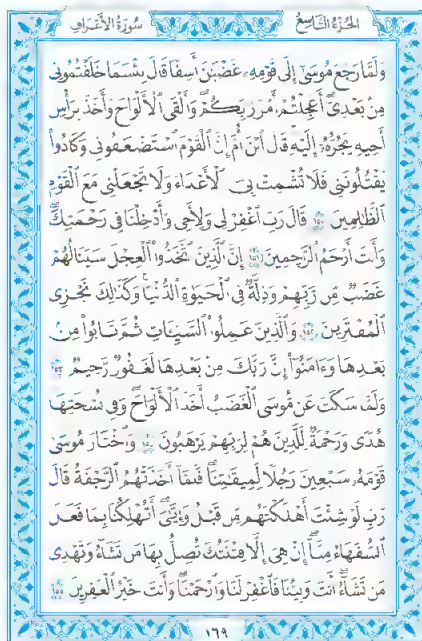 سُورَةُ الْأَعْرَافِ الجُزْءُ التَّاسِعُ
وَلَمَّا رَجَعَ مُوسَىٰٓ إِلَىٰ قَوْمِهِۦ غَضْبَٰنَ أَسِفًا قَالَ بِئْسَمَا خَلَفْتُمُونِى
مِنۢ بَعْدِىٓ أَعَجِلْتُمْ أَمْرَ رَبِّكُمْ وَأَلْقَى ٱلْأَلْوَاحَ وَأَخَذَ بِرَأْسِ
أَخِيهِ يَجُرُّهُۥٓ إِلَيْهِ قَالَ ٱبْنَ أُمَّ إِنَّ ٱلْقَوْمَ ٱسْتَضْعَفُونِى وَكَادُوا۟
يَقْتُلُونَنِى فَلَا تُشْمِتْ بِىَ ٱلْأَعْدَآءَ وَلَا تَجْعَلْنِى مَعَ ٱلْقَوْمِ
ٱلظَّٰلِمِينَ ١٥٠ قَالَ رَبِّ ٱغْفِرْ لِى وَلِأَخِى وَأَدْخِلْنَا فِى رَحْمَتِكَ
وَأَنتَ أَرْحَمُ ٱلرَّٰحِمِينَ ١٥١ إِنَّ ٱلَّذِينَ ٱتَّخَذُوا۟ ٱلْعِجْلَ سَيَنَالُهُمْ
غَضَبٌ مِّن رَّبِّهِمْ وَذِلَّةٌ فِى ٱلْحَيَوٰةِ ٱلدُّنْيَا وَكَذَٰلِكَ نَجْزِى
ٱلْمُفْتَرِينَ ١٥٢ وَٱلَّذِينَ عَمِلُوا۟ ٱلسَّيِّـَٔاتِ ثُمَّ تَابُوا۟ مِنۢ
بَعْدِهَا وَءَامَنُوٓا۟ إِنَّ رَبَّكَ مِنۢ بَعْدِهَا لَغَفُورٌ رَّحِيمٌ ١٥٣
وَلَمَّا سَكَتَ عَن مُّوسَى ٱلْغَضَبُ أَخَذَ ٱلْأَلْوَاحَ وَفِى نُسْخَتِهَا
هُدًى وَرَحْمَةٌ لِّلَّذِينَ هُمْ لِرَبِّهِمْ يَرْهَبُونَ ١٥٤ وَٱخْتَارَ مُوسَىٰ
قَوْمَهُۥ سَبْعِينَ رَجُلًا لِّمِيقَٰتِنَا فَلَمَّآ أَخَذَتْهُمُ ٱلرَّجْفَةُ قَالَ
رَبِّ لَوْ شِئْتَ أَهْلَكْتَهُم مِّن قَبْلُ وَإِيَّٰىَ أَتُهْلِكُنَا بِمَا فَعَلَ
ٱلسُّفَهَآءُ مِنَّآ إِنْ هِىَ إِلَّا فِتْنَتُكَ تُضِلُّ بِهَا مَن تَشَآءُ وَتَهْدِى
مَن تَشَآءُ أَنتَ وَلِيُّنَا فَٱغْفِرْ لَنَا وَٱرْحَمْنَا وَأَنتَ خَيْرُ ٱلْغَٰفِرِينَ ١٥٥
١٦٩